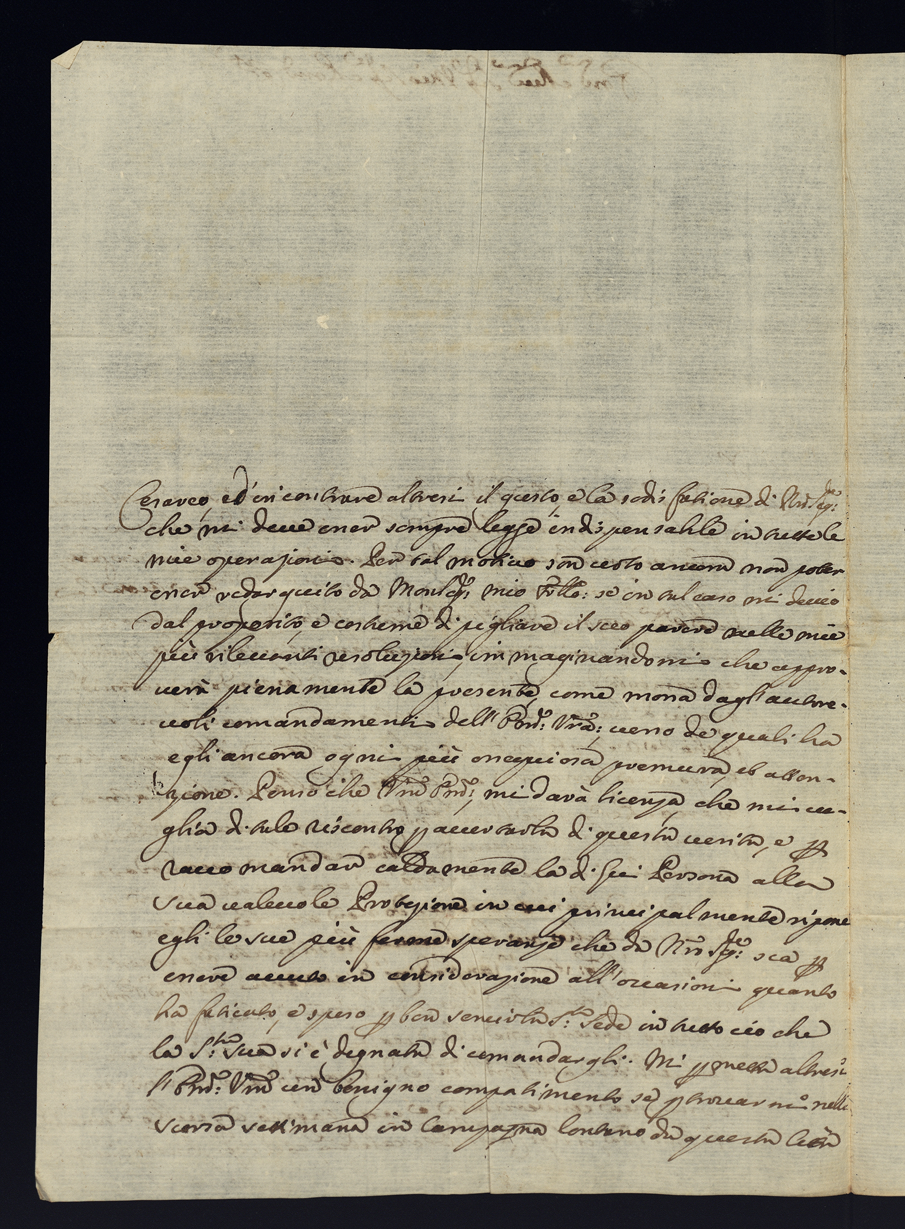 Cesareo, ed' in contrare altresi il gusto, e la sodisfatione di Nrõ Sigre:
che mi deue esser sempre legge indispensabile in tutte le
mie operazioni. Per tal motiuo son certo ancora non poter
esser redarguito da Monsigr: mio Fratllo: se in tal caso mi deuio
dal proposito, e costume di pigliare il suo parere nelle mie
più rileuanti resoluzioni, immaginandomi che appro-
uerà pienamente la presente, come mossa dagl'autre-
uoli comandamenti dell' Emã: Vrã; uerso de quali ha
egli ancora ogni più ossequiosa premura, ed atten-
zione. Penso che Vrã Emã, mi darà licenza, che mi ua-
glia di tale riscontro p accertarla di questa uerità, e p
raccomandar caldamente la di lui Persona alla
sua ualeuole Protezione in cui principalmente ripone
egli le sue più ferme speranze che da Nrõ Sigre: sia p
essere auuto in considerazione all'occasioni quanto
ha faticato, e speso p ben seruir la Sta: Sede in tutto ciò che
la Stà: Sua si è degnata di comandargli. Mi pmetta altresi
l' Emã: Vrã un benigno compatimento se p trouarmi nella
scorsa settimana in Campagna lontano da questa Città